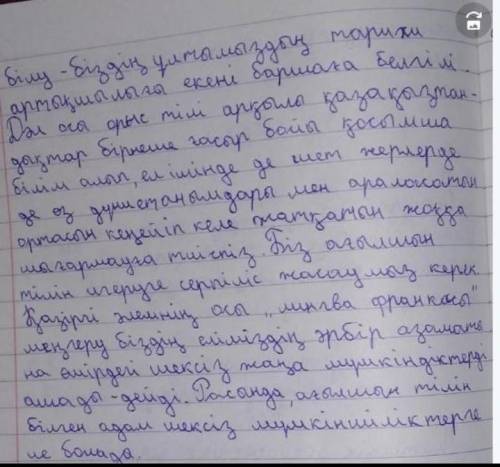 білу - біздің ұлтымыздың тарихи
артықшылығы екені баршаға белгілі.
Дәл осы орыс тілі арқылы қазақыстан-
дықтар бірнеше ғасыр бойы қосымша
білім алып, ел ішінде де шет жерлерде
де өз дүниетанымдары мен араласатын
ортасын кеңейіп келе жатқатын жоққа
шығармауға тиіспіз. Біз ағылшын
тілін игеруге серпіліс жасауымыз керек.
Қазіргі әлемнің осы „лингва франкасы"
меңгеру біздің еліміздің әрбір азаматы
на өмірдей шексіз жаңа мүмкіндіктерді
ашады - дейді. Расында, ағылшын тілін
білген адам шексіз мүмкіншіліктерге
ие болада.